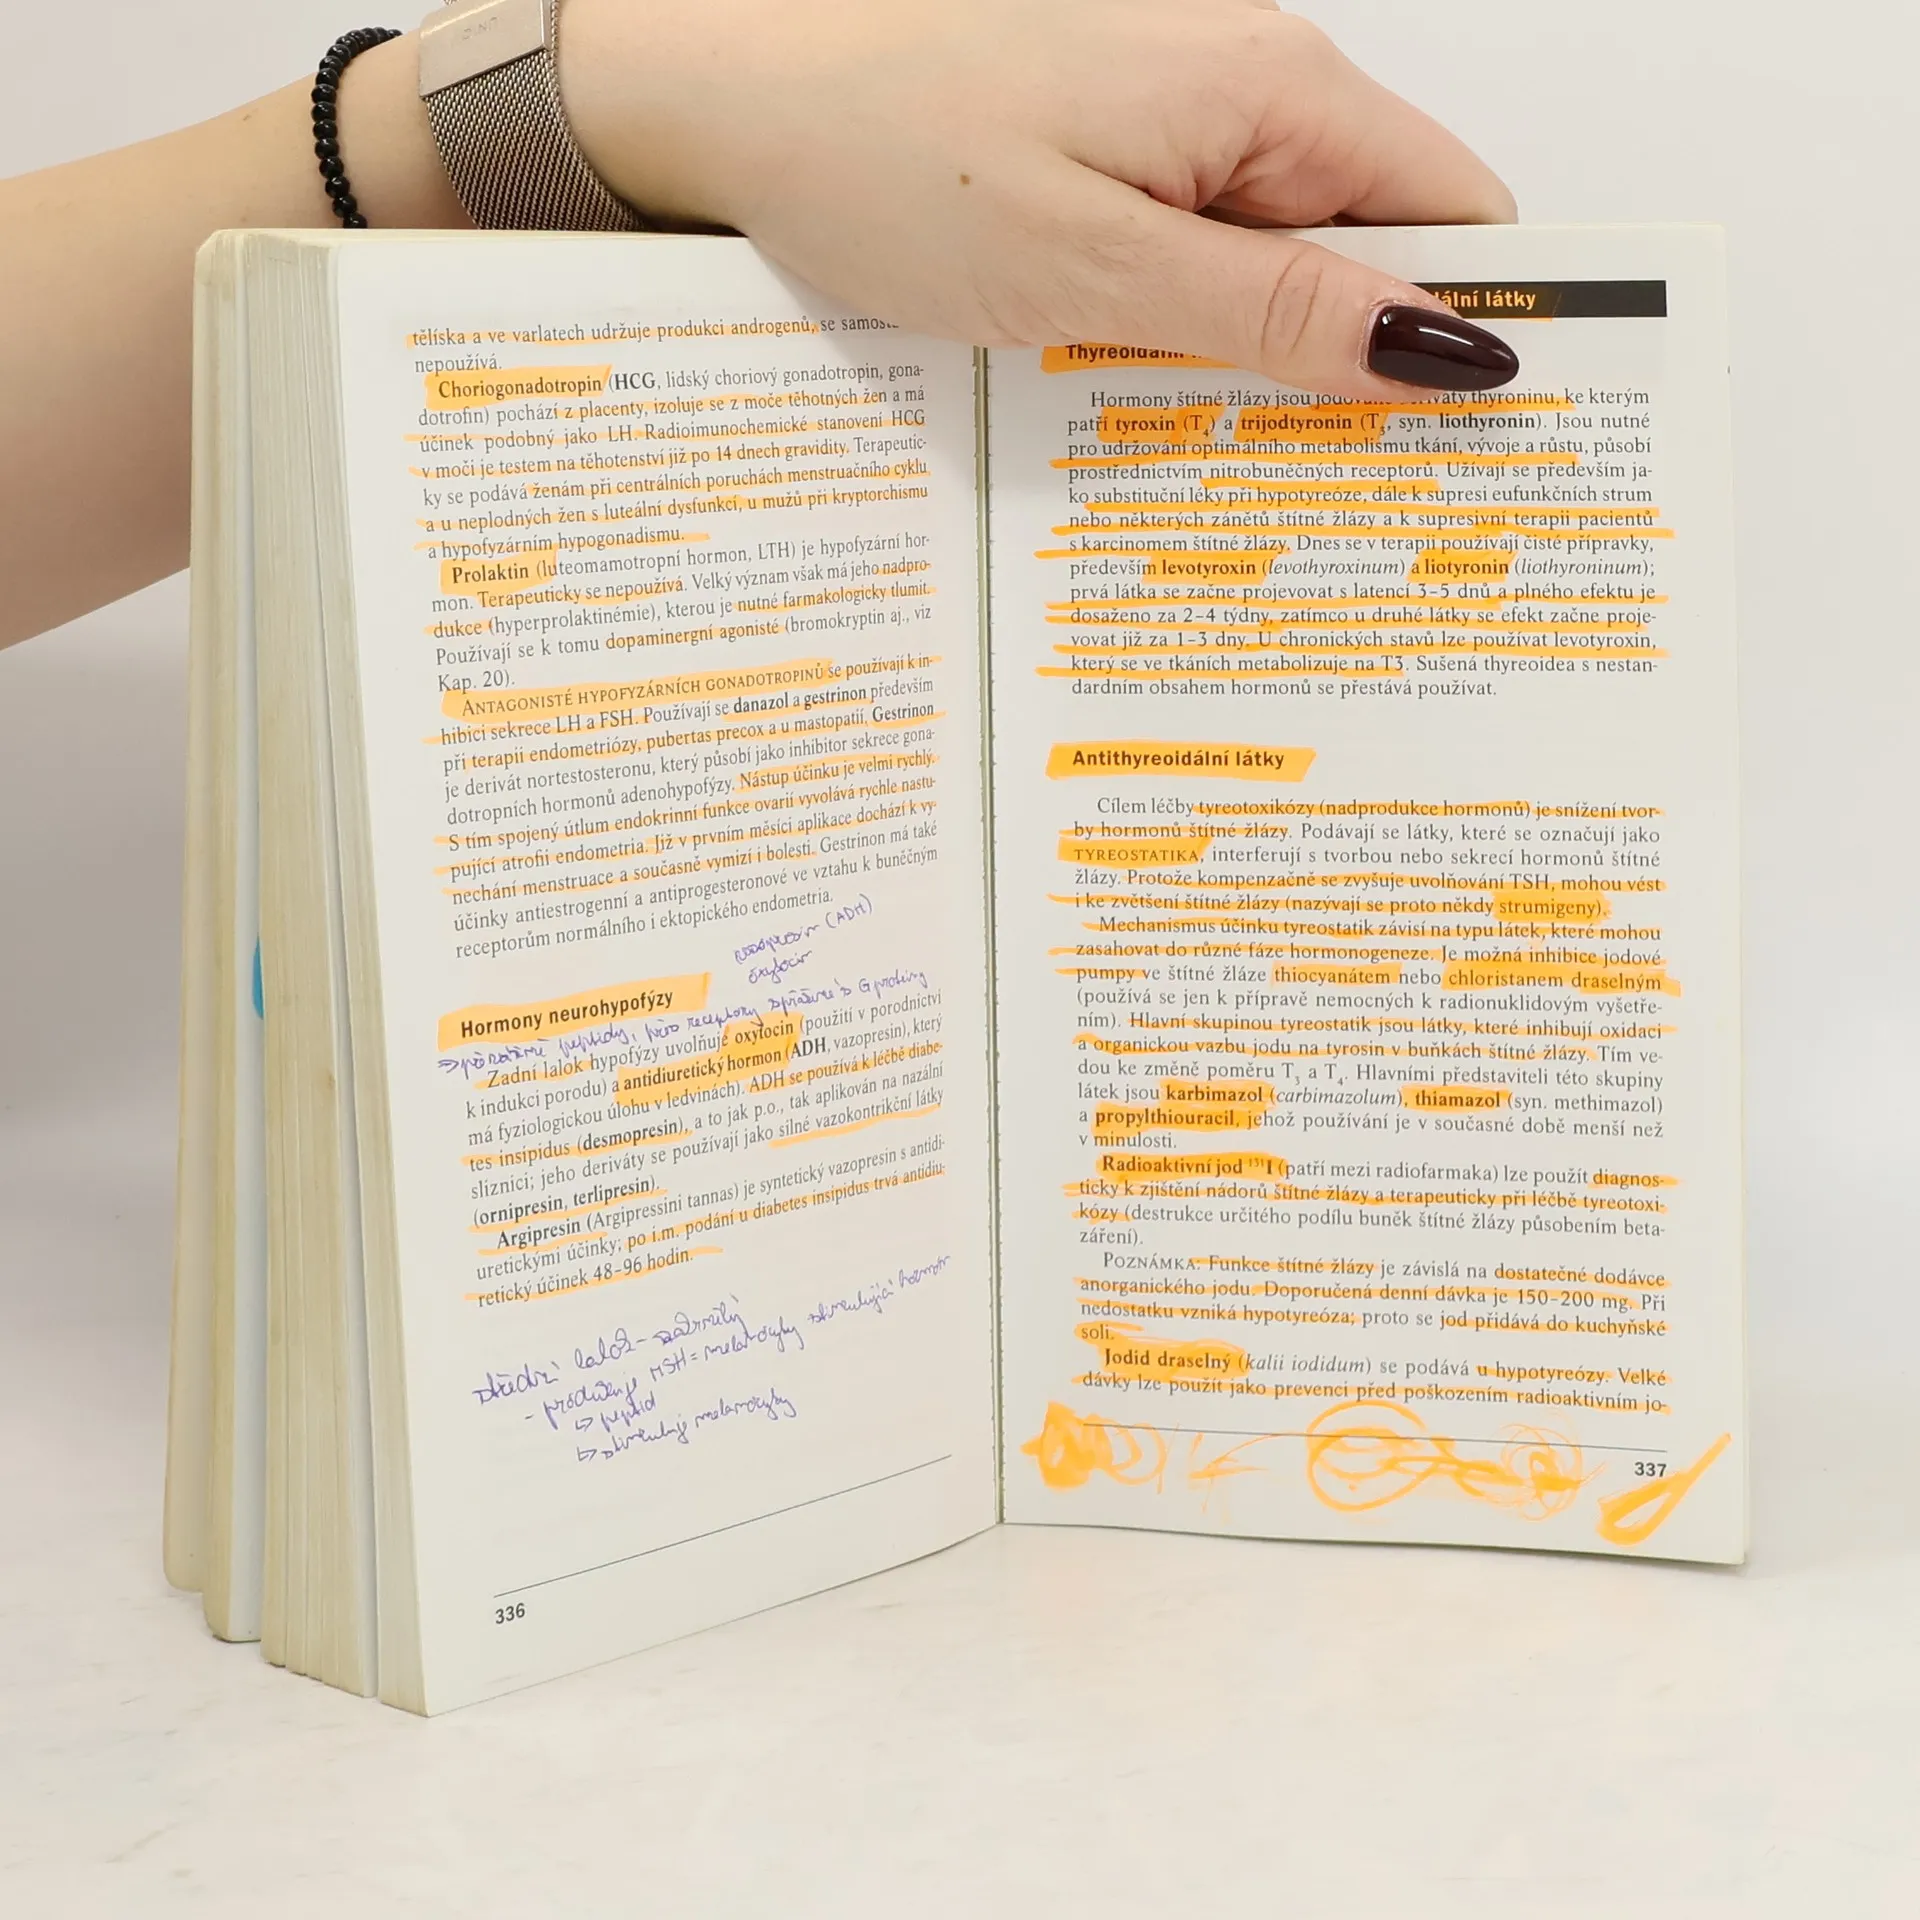 tělíska a ve varlatech udržuje produkci androgenů, se
nepoužívá.
Choriogonadotropin (HCG, lidský choriový gonadotropin, gona-
dotrofin) pochází z placenty, izoluje se z moče těhotných žen a má
účinek podobný jako LH. Radioimunochemické stanovení HCG
v moči je testem na těhotenství již po 14 dnech gravidity. Terapeutic-
ky se podává ženám při centrálních poruchách menstruačního cyklu
a u neplodných žen s luteální dysfunkcí, u mužů při kryptorchismu
a hypofyzárním hypogonadismu.
Prolaktin (luteomamotropní hormon, LTH) je hypofyzární hor-
mon. Terapeuticky se nepoužívá. Velký význam však má jeho nadpro-
dukce (hyperprolaktinémie), kterou je nutné farmakologicky tlumit.
Používají se k tomu dopaminergní agonisté (bromokryptin aj., viz
Kap. 20).
ANTAGONISTÉ HYPOFYZÁRNÍCH GONADOTROPINŮ se používají k in-
hibici sekrece LH a FSH. Používají se danazol a gestrinon především
při terapii endometriózy, pubertas precox a u mastopatií. Gestrinon
je derivát nortestosteronu, který působí jako inhibitor sekrece gona-
dotropních hormonů adenohypofýzy. Nástup účinku je velmi rychlý.
S tím spojený útlum endokrinní funkce ovarií vyvolává rychle nastu-
pující atrofii endometria. Již v prvním měsíci aplikace dochází k vy-
nechání menstruace a současně vymizí i bolesti. Gestrinon má také
účinky antiestrogenní a antiprogesteronové ve vztahu k buněčným
receptorům normálního i ektopického endometria.
vasopresin (ADH)
oxytocin
Hormony neurohypofýzy
peptidy, přes receptory spřažené s G proteiny
Zadní lalok hypofýzy uvolňuje oxytocin (použití v porodnictví
k indukci porodu) a antidiuretický hormon (ADH, vazopresin), který
má fyziologickou úlohu v ledvinách). ADH se používá k léčbě diabe-
tes insipidus (desmopresin), a to jak p.o., tak aplikován na nazální
sliznici; jeho deriváty se používají jako silné vazokontrikční látky
(ornipresin, terlipresin).
Argipresin (Argipressini tannas) je syntetický vazopresin s antidi-
uretickými účinky; po i.m. podání u diabetes insipidus trvá antidiu-
retický účinek 48–96 hodin.
střední lalok -
- produkuje MSH = melanocyty stimulující hormon
↳ peptid
↳ stimuluje melanocyty
336
ální látky
Hormony štítné žlázy jsou thyroninu, ke kterým
patří tyroxin (T4) a trijodtyronin (T3, syn. liothyronin). Jsou nutné
pro udržování optimálního metabolismu tkání, vývoje a růstu, působí
prostřednictvím nitrobuněčných receptorů. Užívají se především ja-
ko substituční léky při hypotyreóze, dále k supresi eufunkčních strum
nebo některých zánětů štítné žlázy a k supresivní terapii pacientů
s karcinomem štítné žlázy. Dnes se v terapii používají čisté přípravky,
především levotyroxin (levothyroxinum) a liotyronin (liothyroninum);
prvá látka se začne projevovat s latencí 3–5 dnů a plného efektu je
dosaženo za 2–4 týdny, zatímco u druhé látky se efekt začne proje-
vovat již za 1–3 dny. U chronických stavů lze používat levotyroxin,
který se ve tkáních metabolizuje na T3. Sušená thyreoidea s nestan-
dardním obsahem hormonů se přestává používat.
Antithyreoidální látky
Cílem léčby tyreotoxikózy (nadprodukce hormonů) je snížení tvor-
by hormonů štítné žlázy. Podávají se látky, které se označují jako
TYREOSTATIKA, interferují s tvorbou nebo sekrecí hormonů štítné
žlázy. Protože kompenzačně se zvyšuje uvolňování TSH, mohou vést
i ke zvětšení štítné žlázy (nazývají se proto někdy strumigeny).
Mechanismus účinku tyreostatik závisí na typu látek, které mohou
zasahovat do různé fáze hormonogeneze. Je možná inhibice jodové
pumpy ve štítné žláze thiocyanátem nebo chloristanem draselným
(používá se jen k přípravě nemocných k radionuklidovým vyšetře-
ním). Hlavní skupinou tyreostatik jsou látky, které inhibují oxidaci
a organickou vazbu jodu na tyrosin v buňkách štítné žlázy. Tím ve-
dou ke změně poměru T3 a T4. Hlavními představiteli této skupiny
látek jsou karbimazol (carbimazolum), thiamazol (syn. methimazol)
a propylthiouracil, jehož používání je v současné době menší než
v minulosti.
Radioaktivní jod 131I (patří mezi radiofarmaka) lze použít diagnos-
ticky k zjištění nádorů štítné žlázy a terapeuticky při léčbě tyreotoxi-
kózy (destrukce určitého podílu buněk štítné žlázy působením beta-
záření).
POZNÁMKA: Funkce štítné žlázy je závislá na dostatečné dodávce
anorganického jodu. Doporučená denní dávka je 150–200 mg. Při
nedostatku vzniká hypotyreóza; proto se jod přidává do kuchyňské
soli.
Jodid draselný (kalii iodidum) se podává u hypotyreózy. Velké
dávky lze použít jako prevenci před poškozením radioaktivním jo-
337